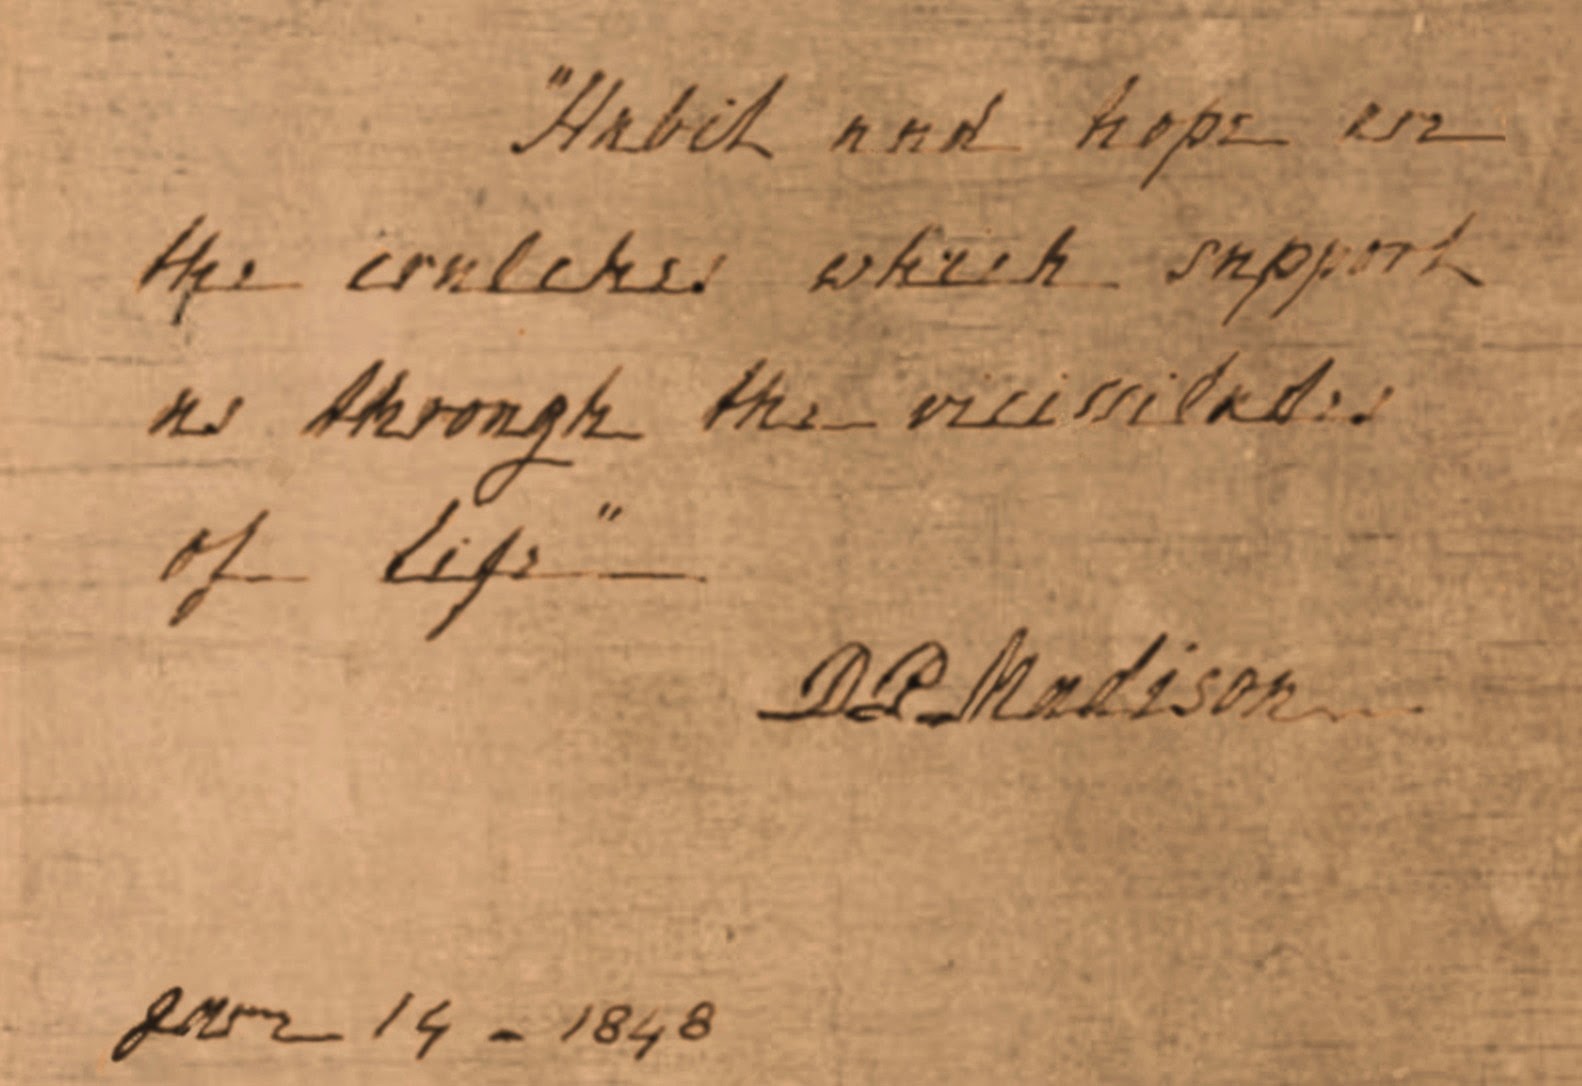 "Habit and hope are
the crutches which support
us through the vicissitudes
of Life"
D P Madison
14 - 1848